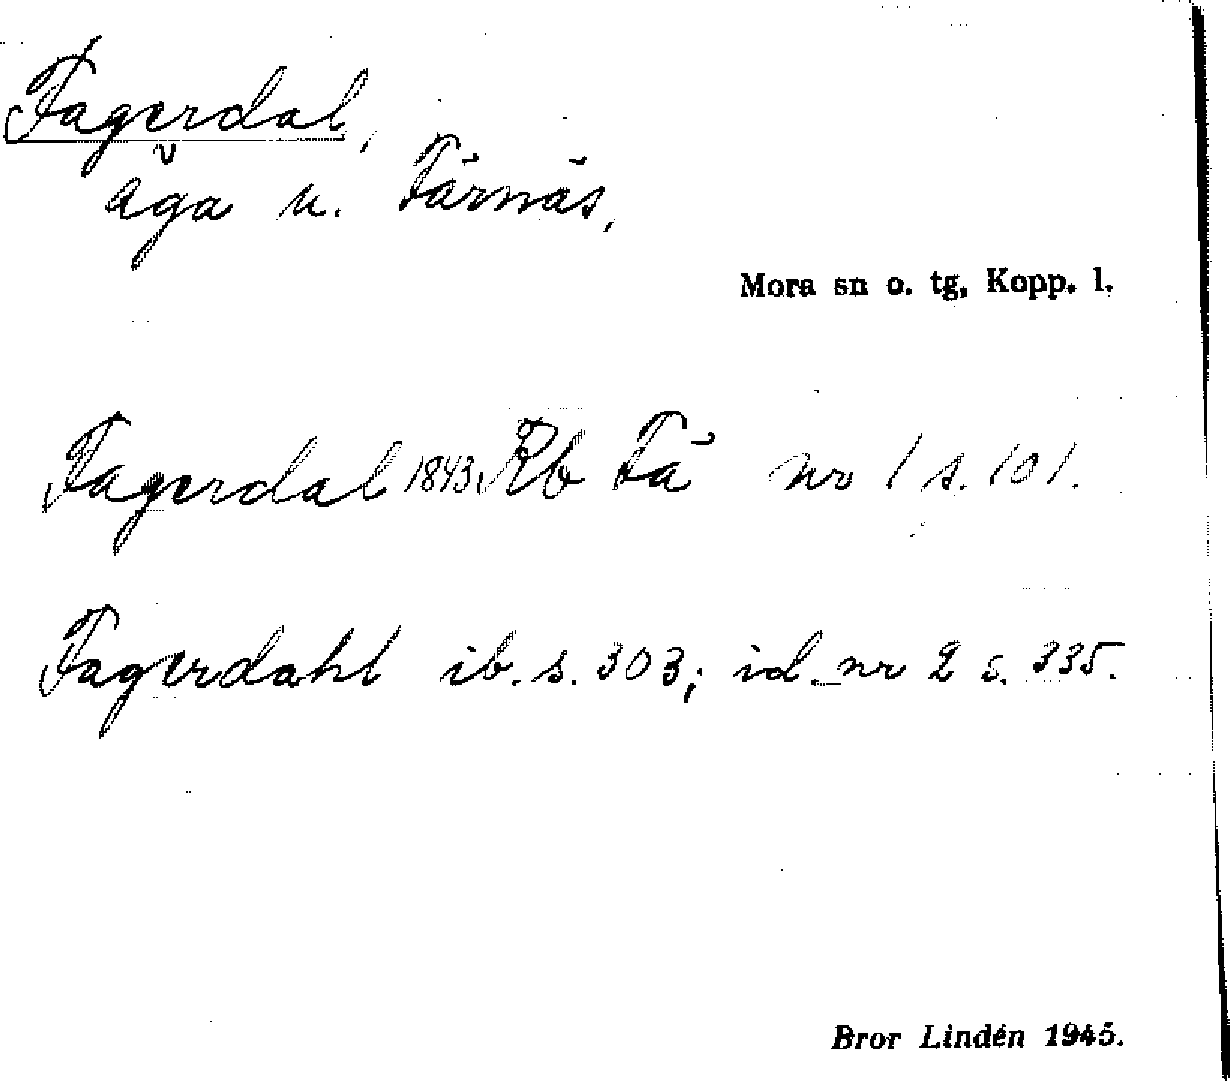 Fagerdal,
äga u. Färnäs,
Mora sn o. tg, Kopp. l.
Fagerdal 1843 Rb Fä nr 1 s. 101.
Fagerdahl ib. s. 303; id. nr 2 s. 335.
Bror Lindén 1945.